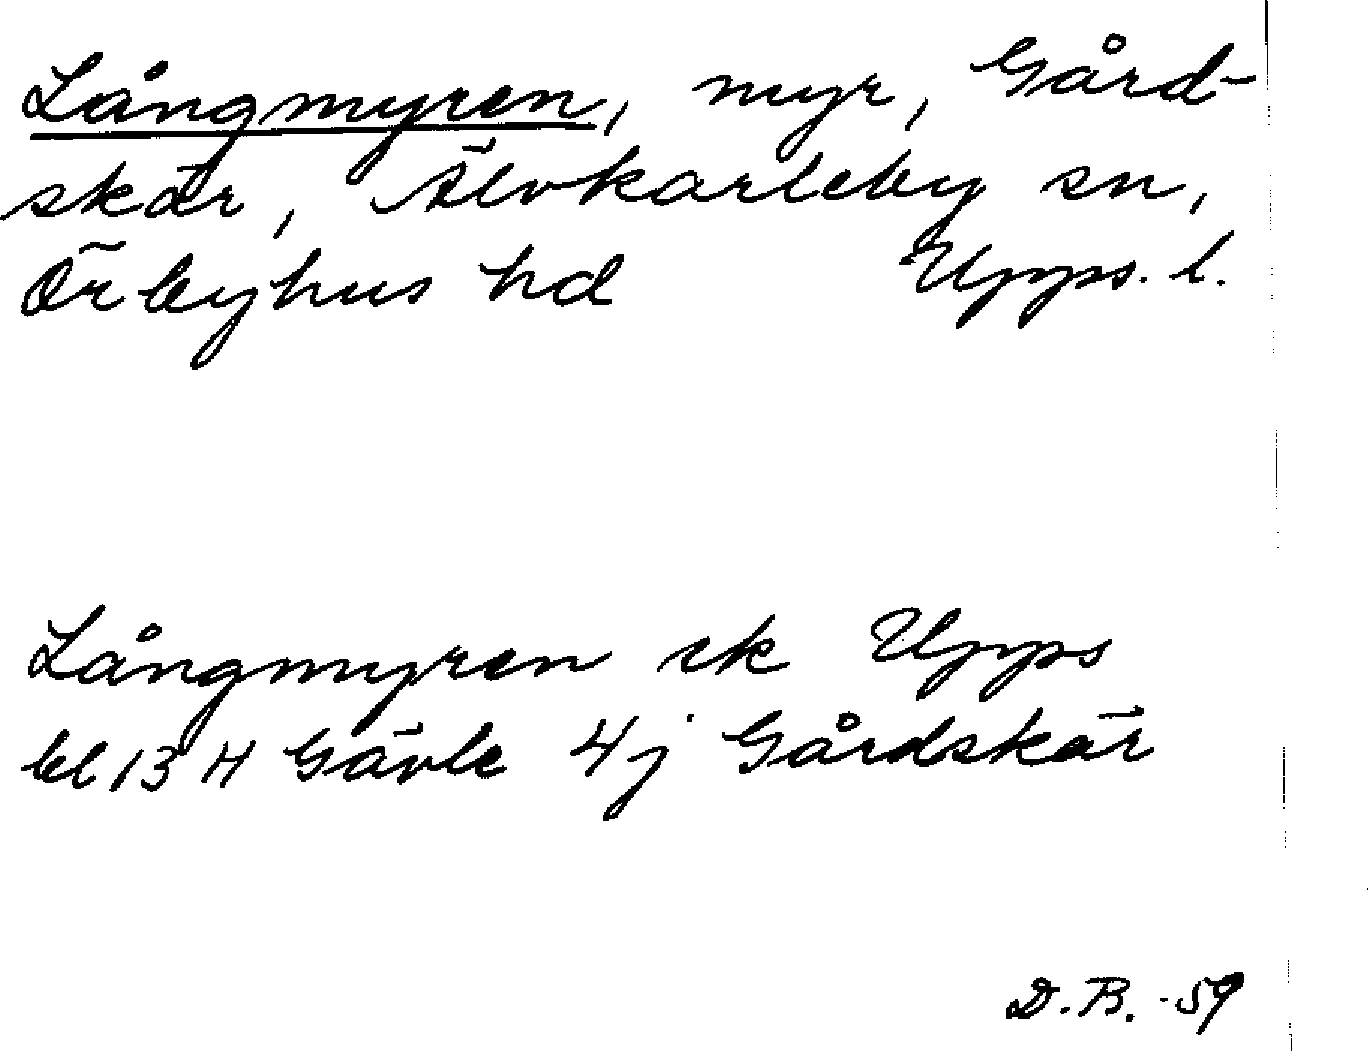 Långmyren, myr, Gård-
skär, Älvkarleby sn,
Örbyhus hd Upps. l.
Långmyren ek Upps
bl 13 H Gävle 4j Gårdskär
D.B. -59